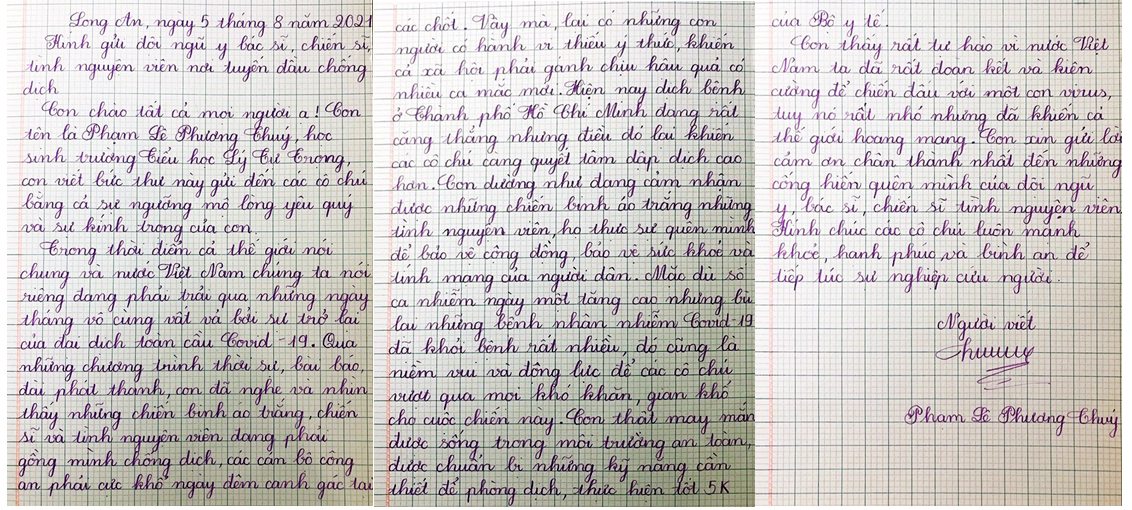 Long An, ngày 5 tháng 8 năm 2021
Kính gửi đội ngũ y bác sĩ, chiến sĩ,
tình nguyện viên nơi tuyến đầu chống
dịch
Con chào tất cả mọi người ạ! Con
tên là Phạm Lê Phương Thuý, học
sinh trường Tiểu học Lý Tự Trọng,
con viết bức thư này gửi đến các cô chú
bằng cả sự ngưỡng mộ lòng yêu quý
và sự kính trọng của con.
Trong thời điểm cả thế giới nói
chung và nước Việt Nam chúng ta nói
riêng đang phải trải qua những ngày
tháng vô cùng vất vả bởi sự trở lại
của đại dịch toàn cầu Covid-19. Qua
những chương trình thời sự, bài báo,
đài phát thanh, con đã nghe và nhìn
thấy những chiến binh áo trắng, chiến
sĩ và tình nguyện viên đang phải
gồng mình chống dịch, các cán bộ công
an phải cực khổ ngày đêm canh gác tại
các chốt. Vậy mà, lại có những con
người có hành vi thiếu ý thức, khiến
cả xã hội phải gánh chịu hậu quả có
nhiều ca mắc mới. Hiện nay dịch bệnh
ở Thành phố Hồ Chí Minh đang rất
căng thẳng nhưng điều đó lại khiến
các cô chú càng quyết tâm dập dịch cao
hơn. Con dường như đang cảm nhận
được những chiến binh áo trắng những
tình nguyện viên, họ thực sự quên mình
để bảo vệ cộng đồng, bảo vệ sức khoẻ và
tính mạng của người dân. Mặc dù số
ca nhiễm ngày một tăng cao nhưng bù
lại những bệnh nhân nhiễm Covid-19
đã khỏi bệnh rất nhiều, đó cũng là
niềm vui và động lực để các cô chú
vượt qua mọi khó khăn, gian khổ
cho cuộc chiến này. Con thật may mắn
được sống trong môi trường an toàn,
được chuẩn bị những kỹ năng cần
thiết để phòng dịch, thực hiện tốt 5K
của Bộ y tế.
Con thấy rất tự hào vì nước Việt
Nam ta đã rất đoàn kết và kiên
cường để chiến đấu với một con virus,
tuy nó rất nhỏ nhưng đã khiến cả
thế giới hoang mang. Con xin gửi lời
cảm ơn chân thành nhất đến những
cống hiến quên mình của đội ngũ
y, bác sĩ, chiến sĩ tình nguyện viên.
Kính chúc các cô chú luôn mạnh
khoẻ, hạnh phúc và bình an để
tiếp tục sự nghiệp cứu người.
Người viết
Thuy
Phạm Lê Phương Thuý